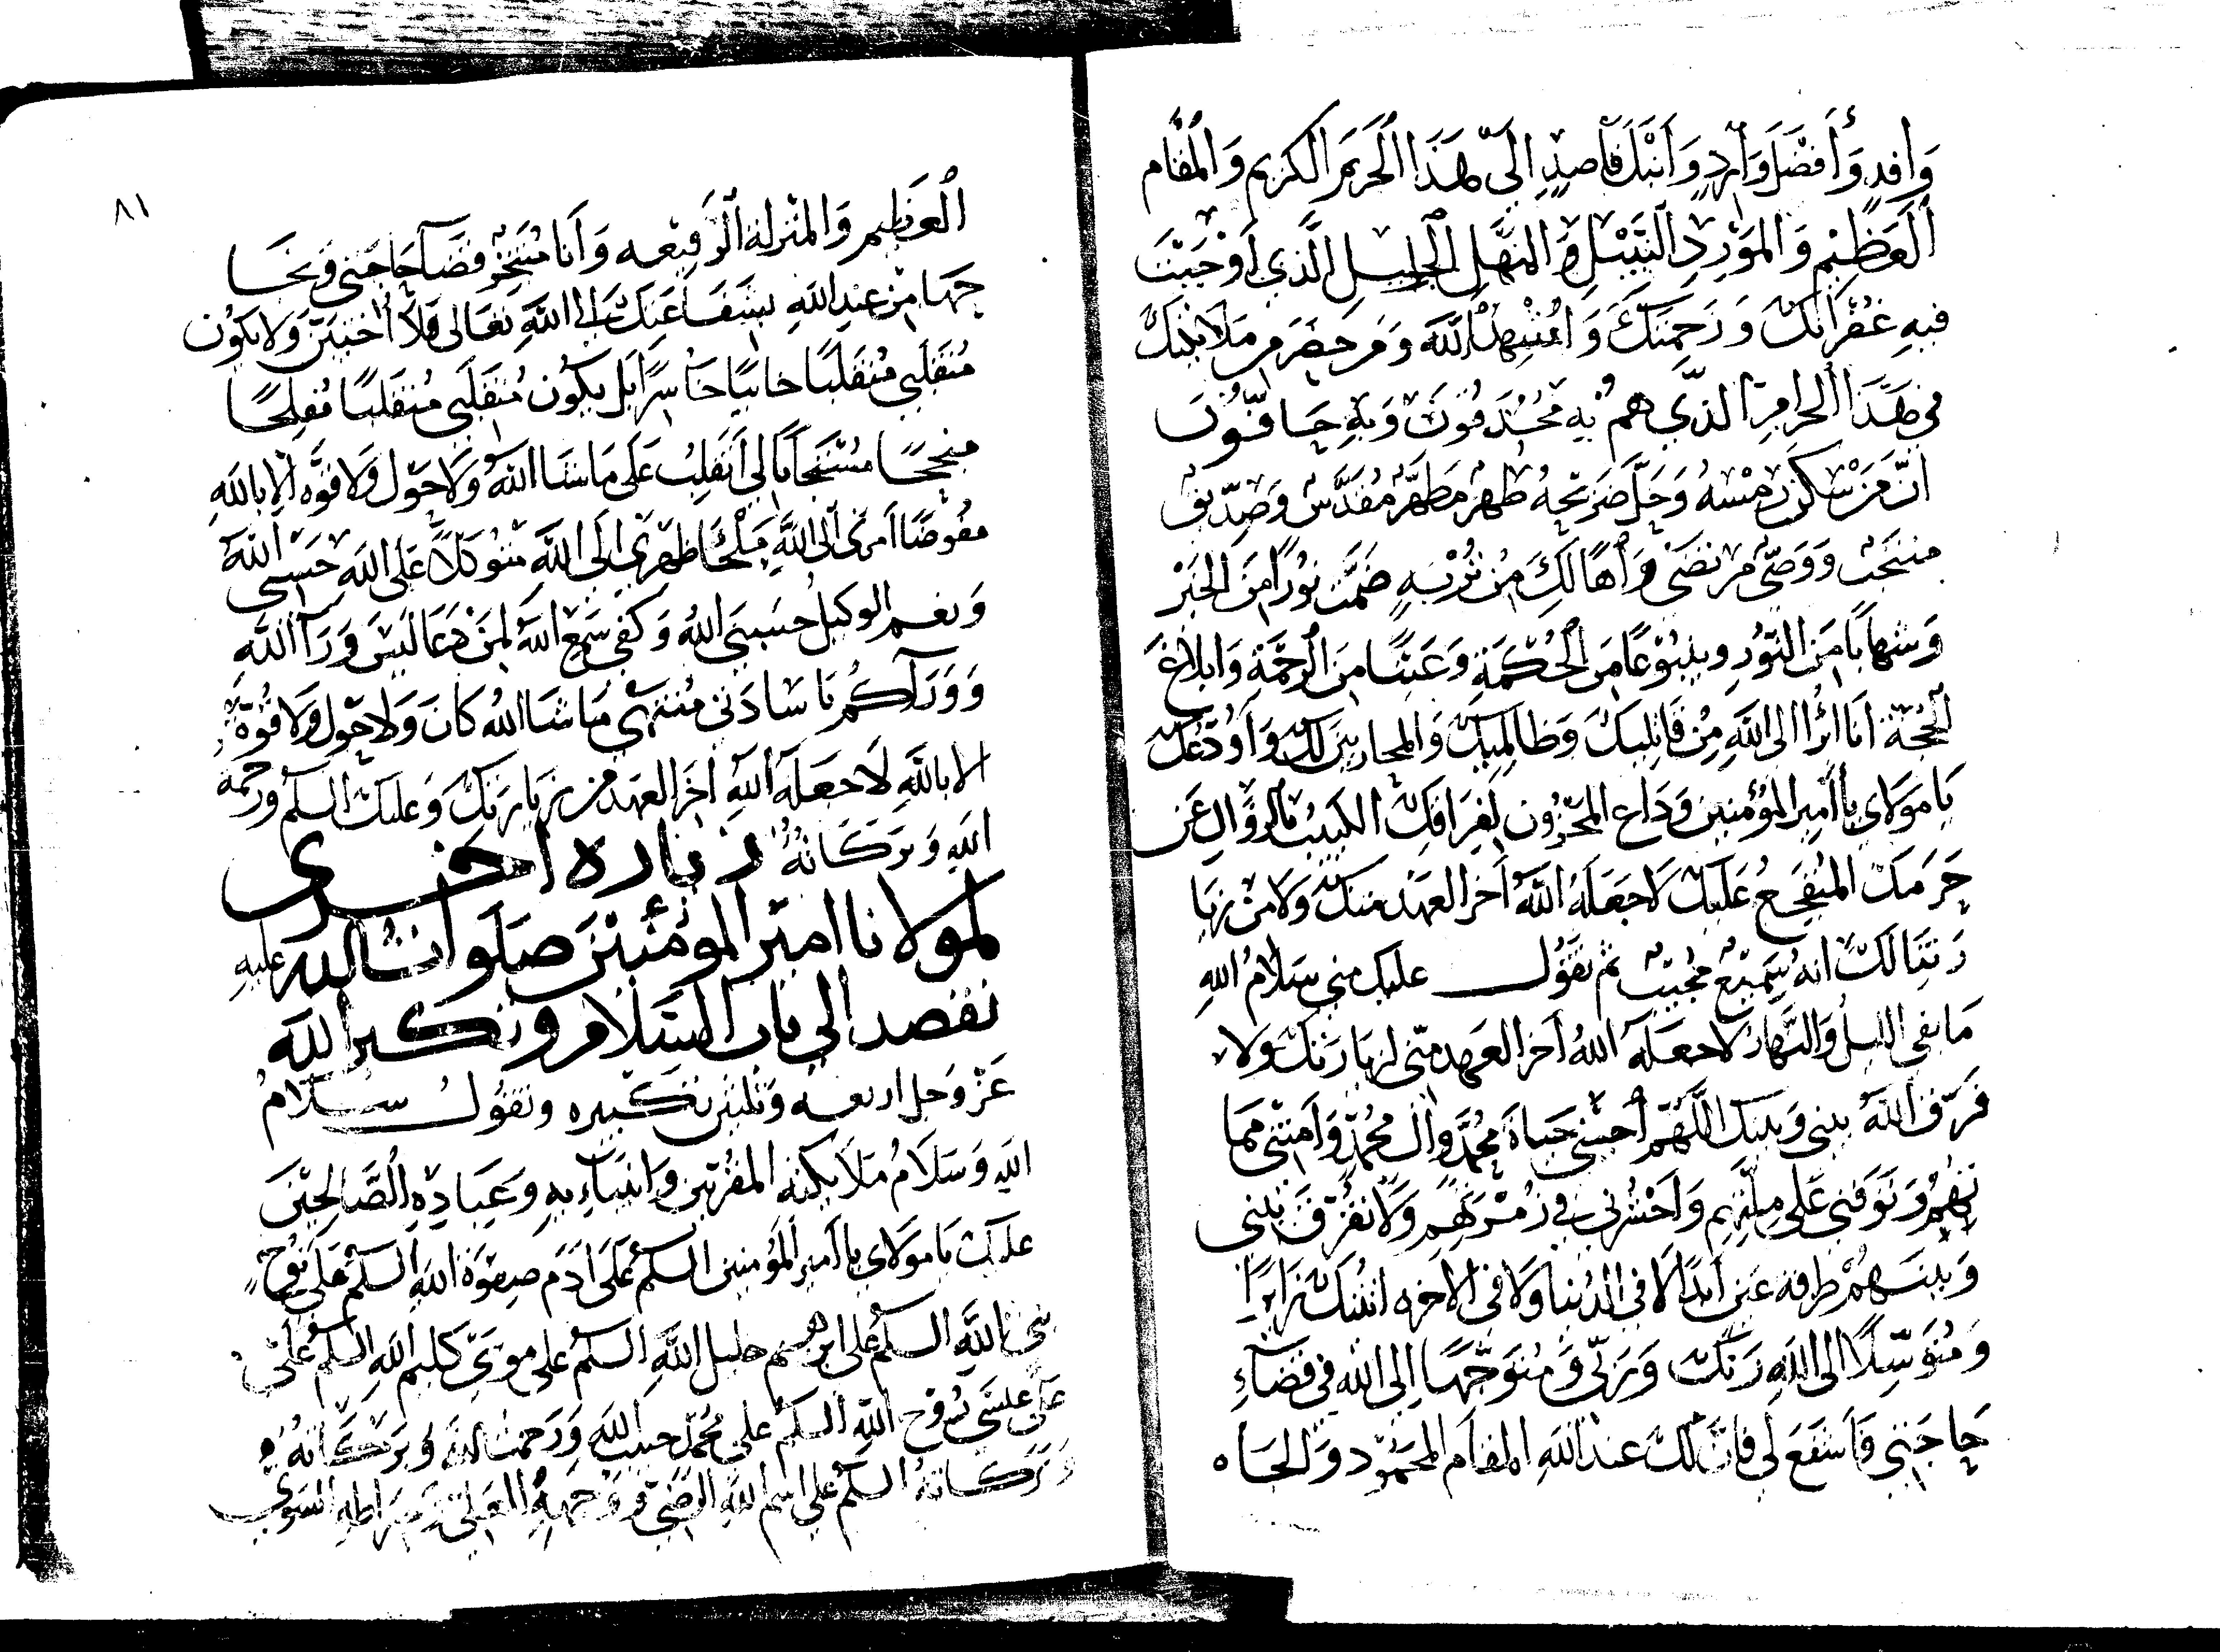 وَافِدٍ وَأَفْضَلَ وَارِدٍ وَأَنْبَلَ قَاصِدٍ إِلَى هٰذَا الْحَرَمِ الْكَرِيمِ وَالْمَقَام
الْعَظِيمِ وَالْمَوْرِدِ النَّبِيلِ وَالْمَنْهَلِ الْجَلِيلِ الَّذِي أَوْجَبْتَ
فِيهِ غُفْرَانَكَ وَرَحْمَتَكَ وَأُشْهِدُ اللهَ وَمَن حَضَرَ مِن مَلَائِكَتِكَ
فِي هٰذَا الحرامِ الَّذِي هُم بِهِ مُحْدِقُونَ وَبِهِ حَافُّونَ
أَنَّ مَنْ سَكَنَ رَمْسَهُ وَحَلَّ ضَرِيحَهُ طُهْرٌ مُطَهَّرٌ مُقَدَّسٌ وَصِدِّيقٌ
مُنْتَجَبٌ وَوَصِيٌّ مُرْتَضَى وَآهًا لَكِ مِنْ تُرْبَةٍ ضَمَّت نُورًا مِنَ الخَيْرِ
وَشِهَابًا مِنَ النُّورِ وينبُوعًا مِنَ الحِكْمَةِ وَعَيْنًا مِنَ الرَّحْمَةِ وَإِبْلَاغَ
الحُجَّةِ أَنَا أَبْرَأُ إِلَى اللهِ مِنْ قَاتِلِيكَ وَظَالِمِيكَ وَالمحَارِبِينَ لَكَ وَأُوَدِّعُكَ
يَا مَوْلَايَ يَا أَمِيرَ المُؤْمِنِينَ وَدَاعَ المَحْزُونِ لِفِرَاقِكَ الكَئِيبِ بِالزَّوَالِ عَن
حَرَمِكَ المُتَفَجِّعِ عَلَيْكَ لَاجَعَلَهُ اللهُ آخِرَ العَهْدِ مِنْكَ وَلَا مِنْ زِيَا
رَتِنَا لَكَ إِنَّهُ سَمِيعٌ مُجِيبٌ ثم تَقُولُ عليك مِنِّي سَلَامُ اللهِ
مَا بَقِيَ اللَّيلُ وَالنَّهَارُ لَاجَعَلَهُ اللهُ آخِرَ العَهدِ مِنِّي لِزِيَارَتِكَ وَلا
فَرَّقَ اللهُ بَيْنِي وَبَيْنَكَ اللّٰهُمَّ أَحْيِنِي حَيَاةَ مُحَمَّدٍ وَآلِ مُحَمَّدٍ وَأَمِتْنِي مَمَا
تَهُمْ وَتَوَفَّنِي عَلَى مِلَّتِهِم وَاحْشُرْنِي فِي زُمْرَتِهِم وَلَا تُفَرِّقْ بَيْنِي
وَبَيْنَهُمْ طَرْفَةَ عَيْنٍ أَبَدًا لَا فِي الدُّنْيَا وَلَا فِي الآخِرَةِ أَتَيْتُكَ زَائِرًا
وَمُتَوَسِّلًا إِلَى اللهِ رَبِّكَ وَرَبِّي وَمُتَوَجِّهًا إِلَى اللهِ فِي قَضَاءِ
حَاجَتِي فَاشْفَعْ لِي فَإِنَّ لَكَ عِنْدَ اللهِ المَقَامَ المَحْمُودَ وَالجَاه
٨١
الْعَظِيمَ وَالمَنْزِلَةَ الرَّفِيعه وَأَنَا مُتَنَجِّزٌ قَضَاءَ حَاجَتِي وَنَجَا
حَهَا مِنْ عِنْدِ اللهِ بِشَفَاعَتِكَ إِلَى اللهِ تَعَالَى فَلَا أَخِيبَنَّ وَلَا يَكُون
مُنْقَلَبِي مُنْقَلَبًا خَائِبًا خَاسِرًا بَلْ يَكُونُ مُنْقَلَبِي مُنْقَلَبًا مُفلِحًا
منجحًا مُسْتَجَابًا لِي أَنْقَلِبُ عَلَى مَا شَاءَ اللهُ وَلَا حَوْلَ وَلَا قُوَّةَ إِلَّا بِاللهِ
مُفَوِّضًا أَمْرِي إِلَى اللهِ مُلْجِئًا ظَهْرِي إِلَى اللهِ مُتَوَكِّلًا عَلَى اللهِ حَسْبِيَ اللهُ
وَنِعْمَ الوَكِيلُ حَسْبِيَ اللهُ وَكَفَى سَمِعَ اللهُ لِمَنْ دَعَا لَيْسَ وَرَاءَ اللهِ
وَوَرَاءَكُمْ يَا سَادَتِي مُنْتَهَى مَا شَاءَ اللهُ كَانَ وَلَا حَوْلَ وَلَا قُوَّةَ
إِلَّا بِاللهِ لَا جَعَلَهُ اللهُ آخِرَ العَهْدِ مِنْ زِيَارَتِكَ وَعَلَيْكَ السلم ورحمة
اللهِ وَبَرَكَاتُهُ زياره اخرى
لمولانا امير المؤمنين صلوات الله عليه
تقصد الى باب السلام وتكبر الله
عَزَّ وَجَلَّ اربعه وَثلثين تكبيره وتقُولُ سَلَامُ
اللهِ وَسَلَامُ مَلَائِكَتِهِ المُقَرَّبِينَ وَأَنْبِيَاءِيهِ وَعِبَادِهِ الصَّالِحِينَ
عليك يَا مَوْلَاي يَا أَمِيرَ المُؤْمِنِينَ السلمُ عَلَى آدَمَ صِفوَةِ اللهِ السلم عَلَى نُوحٍ
نبي اللهِ السلمُ عَلَى ابرهيم خليل اللهِ السلمُ على مُوسَى كَلِيمِ اللهِ السلمُ عَلَى
عَلَى عِيسَى رُوحِ اللهِ السلمُ عَلَى مُحَمَّدٍ حَبِيبِ اللهِ وَرَحمتُ اللهِ وَبَرَكَاتُهُ
وَبَرَكَاتُهُ السلمُ عَلَى اسْمِ اللهِ الرَّضِيِّ وَوَجْهِهِ العَلِيِّ وَصِرَاطِهِ السَّوِيِّ